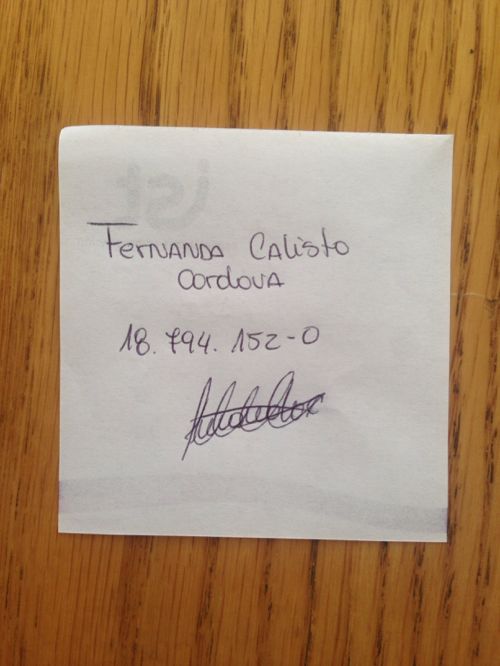 Fernanda Calisto
Cordova
18.794.152-0